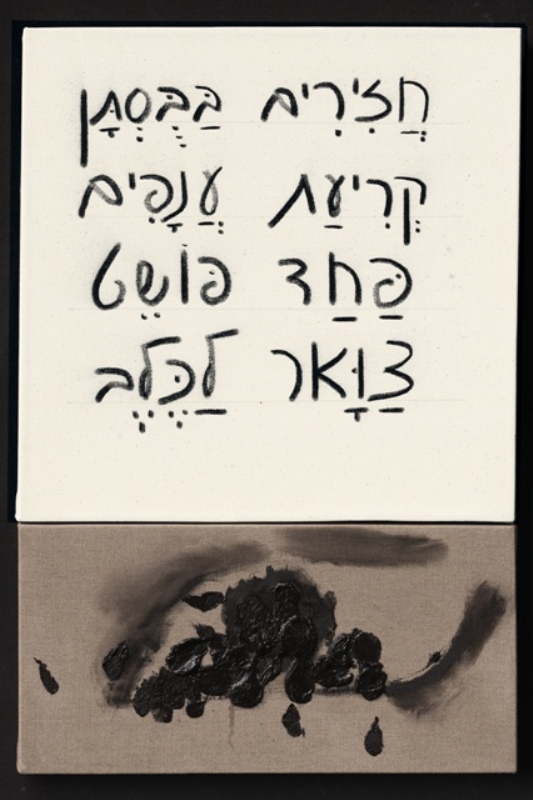 חֲזִירִים בַּבֻּסְתָן
קְרִיעַת עֲנָפִים
פַּחַד פּוֹשֵׁט
צַוָּאר לַכֶּלֶב